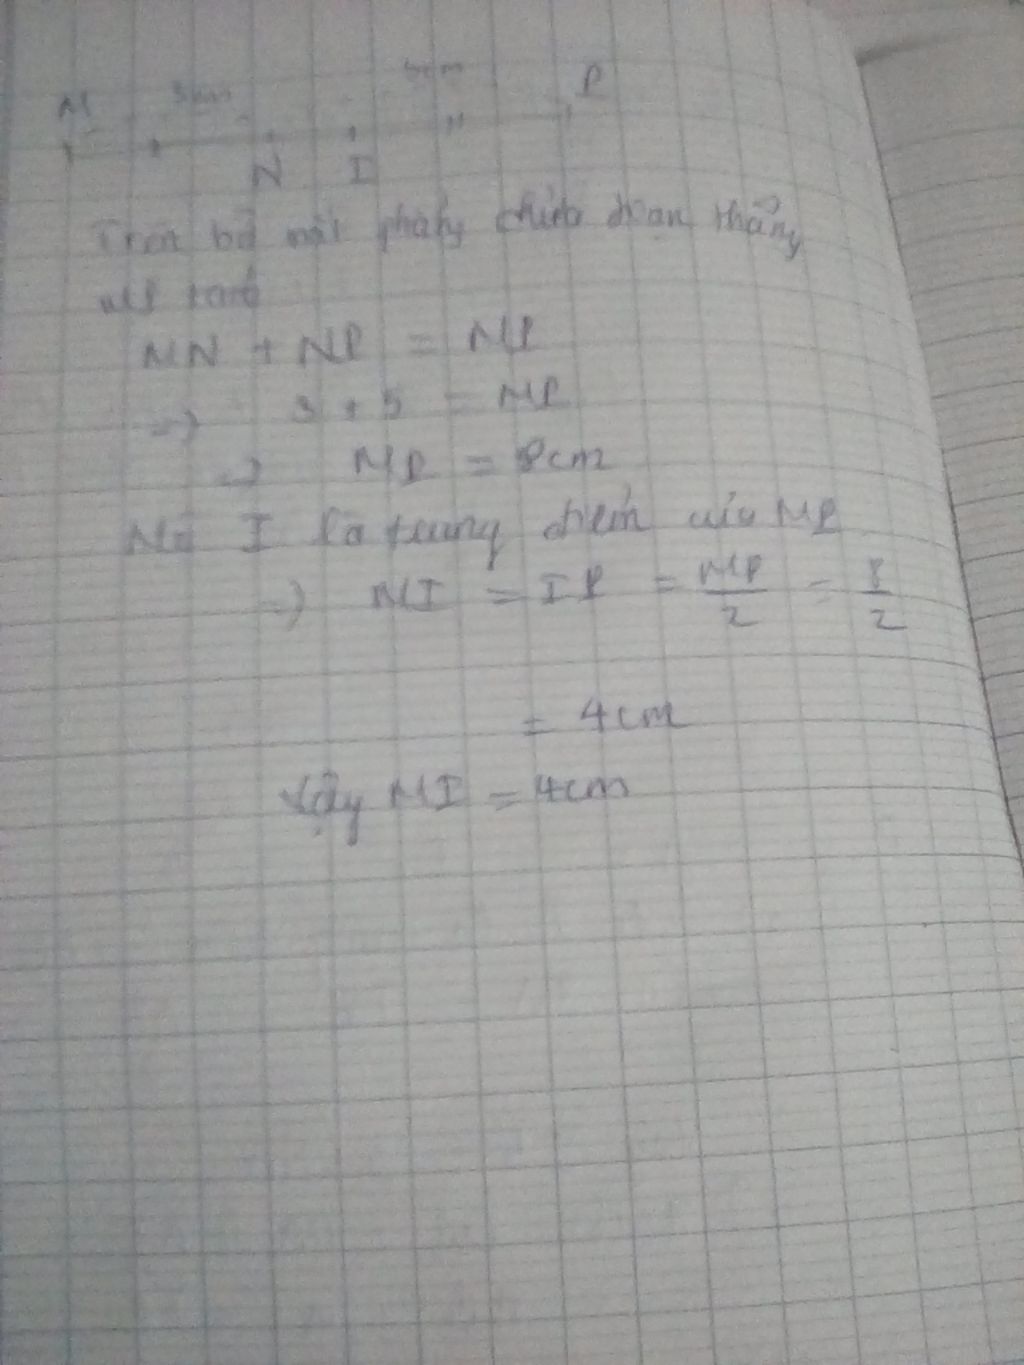 M 3cm 5cm P
N I
Trên bờ mặt phẳng chứa đoạn thẳng
MP ta có
MN + NP = MP
=> 3 + 5 = MP
=> MP = 8cm
Mà I là trung điểm của MP
=> MI = IP = MP/2 = 8/2
= 4cm
Vậy MI = 4cm